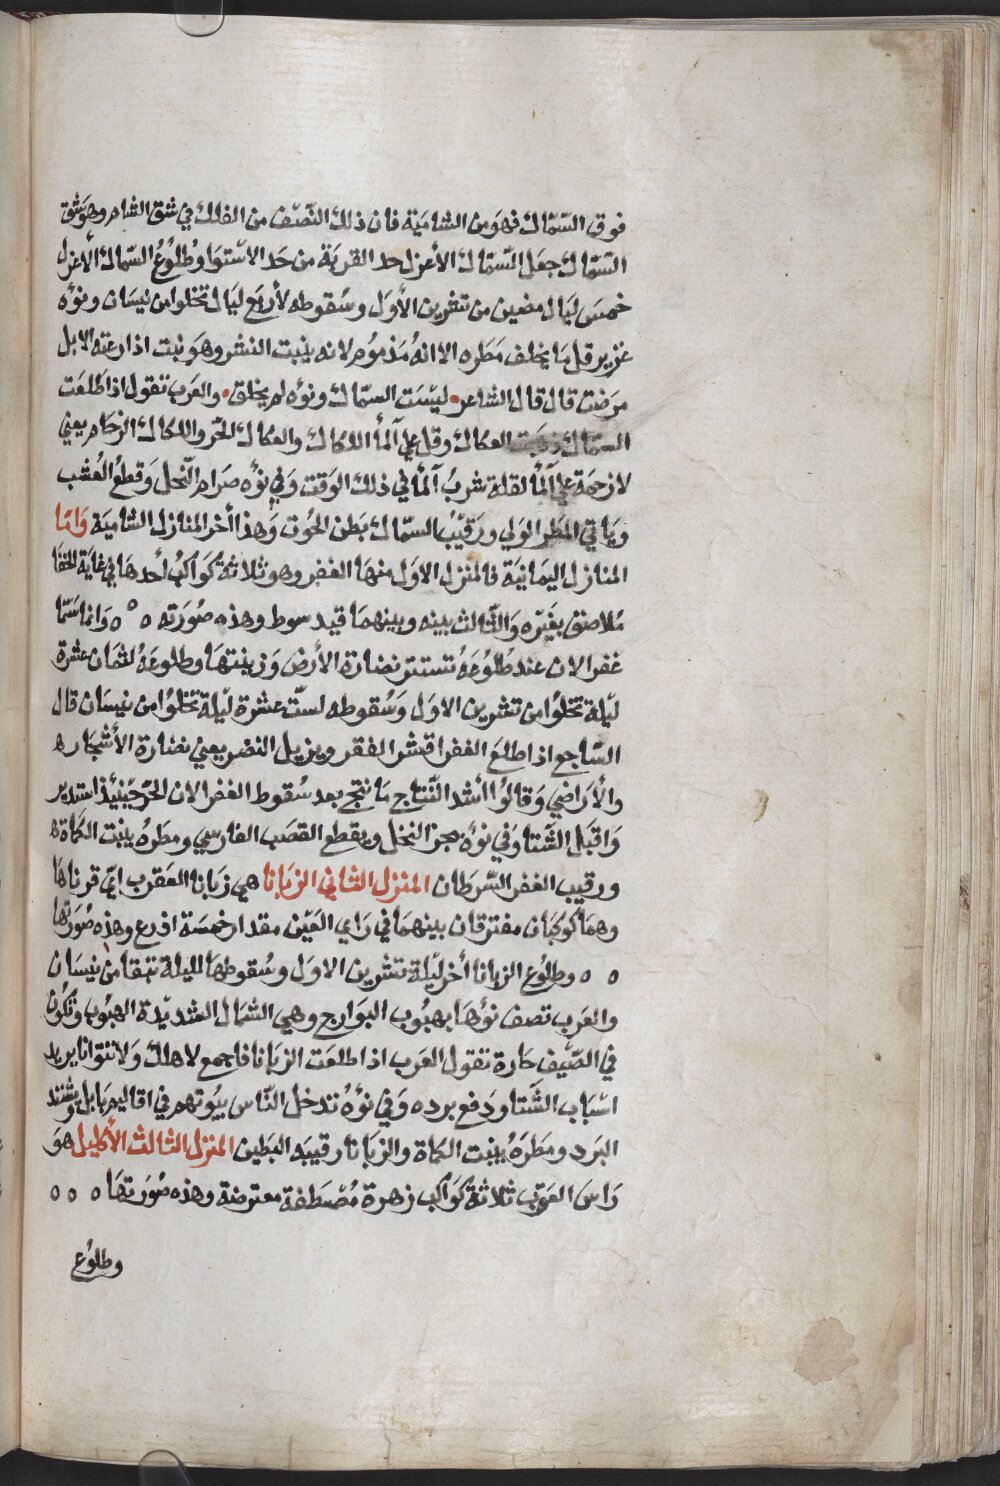 فوق السّمّاك فهوَ من الشامَية فان ذلك النّصّف من الفلك في شق الشام وهوَ شق
السّمّاك جعَل السّمّاك الأعزل حد القريَة من حَد الاسّتوَا وطُلوُعُ السّمّاك الأعزل
خمسَ ليَال مضين من تشرين الأوَل وسَقوطه لأربَع ليَال تخلوا من نيسَان ونؤه
عزير قل مَا يخلف مَطره الا انهُ مَذموُم لانه ينبت النشر وهوَ نبت اذا رعته الابل
مرَضت قال قال الشاعر • ليسَت السمّاك ونؤه لم يخلق • والعَرب تقول اذا طلعَت
السمّاك ذهَبت العكاك وقل علي آلمأ اللكاك والعكاك الحّر واللكاك الزحَام يعني
لا زحمَة علي آلمأ لقلة شربُ آلمأ في ذلك الوَقت وَفي نؤه صرَام النّحل وَقطعُ العُشب
ويَاتي المطَر الوَلي ورَقيّب السمّاك بطن الحُوت وَهذا أخر المنازل الشاميَة وَامّا
المنازل اليمَانيَة فالمنزل الاوَل منهَا الغفر وهو ثلاثةُ كوَاكبُ أحدهَا في غايَة الخفا
مُلاصق بغَيّره وَالثّالث بينه وبينهمَا قيد سوط وهذه صُورَته ه ه ه وَانما سَمّا
غفر الان عند طُلوُعَهُ تستتر نضارة الأرض وَزينتهَا وطلوعَهُ لثمَان عشرة
ليّلة تخلوُا من تشرين الاوَل وَسُقوطه لستّ عشرة ليّلة تخلوُا من نيسَان قال
السّاجع اذا طلعَ الغفر اقشر الفقر ويزيل النضر يعني نضارة الأشجَار ه
والأرَاضي وَقالوُا اشد النّتاج مَا نتج بعد سُقوط الغفر الان الحّر حيَنيئذ استدير
وَاقبَل الشّتا وَفي نؤه يجز النخل ويقطع القصَب الفارسي ومطَرهُ ينبت الكمَاة ه
ورقيب الغفر السّرطان المنزل الثاني الزبَانا هي زبَانا العَقرب اي قرناهَا
وهمَا كوكبَان مفترقان بينهمَا في رَاي العَيّن مقدار خمسَة اذرع وهذه صُورَتها
ه ه وطلوُع الزبانا أخر ليّلة تشرين الاوَل وسُقوطهَا لليلة تبقا من نيسَان
والعَرب تصف نؤهَا بهبُوب البوَارج وهي الشمَال الشديّدة الهبُوب وتكوُن
في الصّيف حَارة تقول العَرب اذا طلعَت الزبَانا فاجمع لاهلك وَلا تتوَانا يريد
اسّبَاب الشّتا ودَفع برده وَفي نؤهُ تدخل النّاس بيُوتهم في اقاليم بَابل ويشتد
البرَد ومطَرهُ ينبت الكمَاة والزبَانا رقيبَه البَطين المنزل الثالث الأكليل هوَ
رَاس العَقرب ثلاثةُ كوَاكب زهرة مُصّطَفة معترضة وهذه صُورَتهَا ه ه ه
وطلوُع